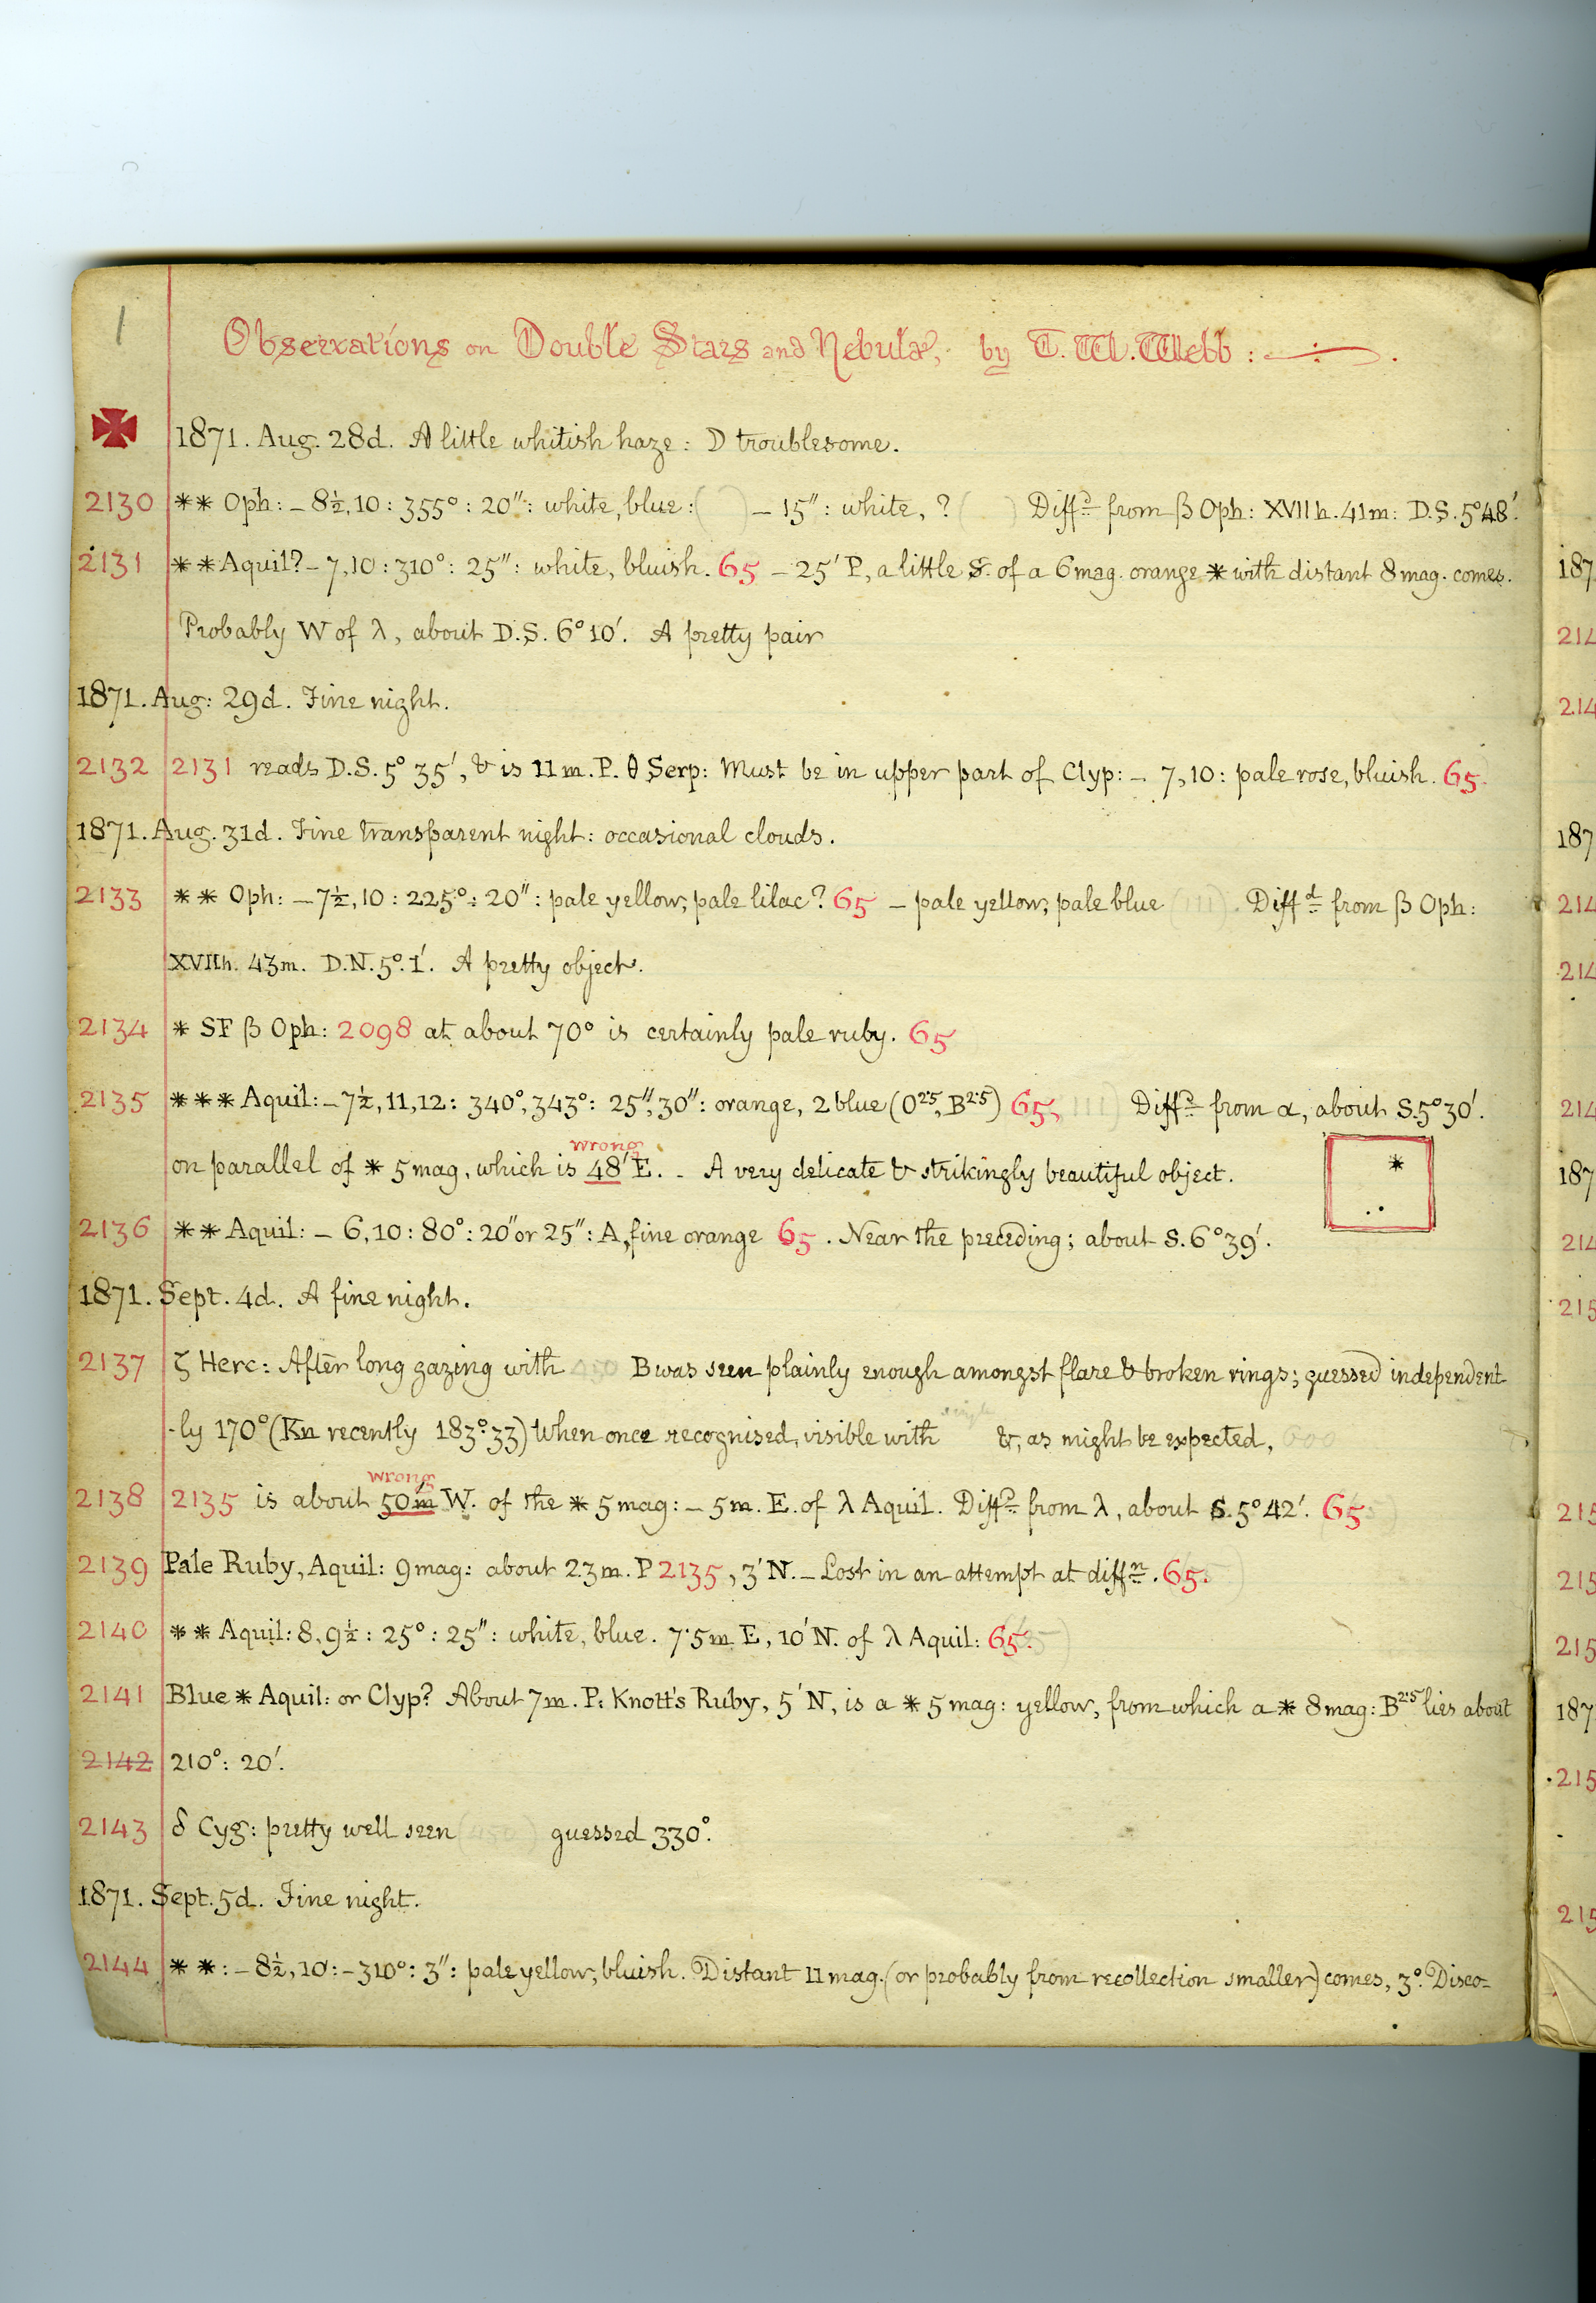 1
Observations on Double Stars and Nebulæ, by T. W. Webb :
1871. Aug. 28d. A little whitish haze : D troublesome.
2130 ** Oph: – 8½, 10 : 355° : 20″ : white, blue : ( ) – 15″ : white, ? ( ) Diff.d from β Oph: XVIIh. 41m: D.S. 5°48′.
2131 ** Aquil? – 7, 10 : 310° : 25″ : white, bluish. 65 – 25′ P, a little S. of a 6 mag. orange * with distant 8 mag. comes.
Probably W of λ, about D.S. 6°10′. A pretty pair
1871. Aug: 29d. Fine night.
2132 2131 reads D.S. 5° 35′, & is 11m. P. θ Serp: Must be in upper part of Clyp: – 7, 10 : pale rose, bluish. 65
1871. Aug. 31d. Fine transparent night : occasional clouds.
2133 ** Oph: – 7½, 10 : 225° : 20″ : pale yellow, pale lilac? 65 – pale yellow, pale blue (111). Diff.d from β Oph:
XVIIh. 43m. D.N. 5°.1′. A pretty object.
2134 * SF β Oph: 2098 at about 70° is certainly pale ruby. 65
2135 *** Aquil: – 7½, 11, 12 : 340°, 343° : 25″, 30″ : orange, 2 blue (O25, B2.5) 65, 111) Diff.d from α, about S. 5°30′.
wrong
on parallel of * 5 mag, which is 48′ E. – A very delicate & strikingly beautiful object.
2136 ** Aquil: – 6, 10 : 80° : 20″ or 25″ : A, fine orange 65. Near the preceding; about S. 6°39′.
1871. Sept. 4d. A fine night.
2137 ζ Herc: After long gazing with 450 B was seen plainly enough amongst flare & broken rings; guessed independent-
-ly 170° (Kn recently 183°.33) When once recognised, visible with &, as might be expected, 600
wrong
2138 2135 is about 50m W. of the * 5 mag: – 5m. E. of λ Aquil. Diff.d from λ, about S. 5°42′. 65
2139 Pale Ruby, Aquil: 9 mag: about 23m. P 2135, 3′ N. – Lost in an attempt at diff.n. 65.
2140 ** Aquil: 8, 9½ : 25° : 25″ : white, blue. 7.5m E, 10′ N. of λ Aquil: 65.
2141 Blue * Aquil: or Clyp? About 7m. P. Knott's Ruby, 5′ N, is a * 5 mag: yellow, from which a * 8 mag: B2.5 lies about
2142 210° : 20′.
2143 δ Cyg: pretty well seen (450) guessed 330°.
1871. Sept. 5d. Fine night.
2144 ** : – 8½, 10 : – 310° : 3″ : pale yellow, bluish. Distant 11 mag. (or probably from recollection smaller) comes, 3°. Disco-